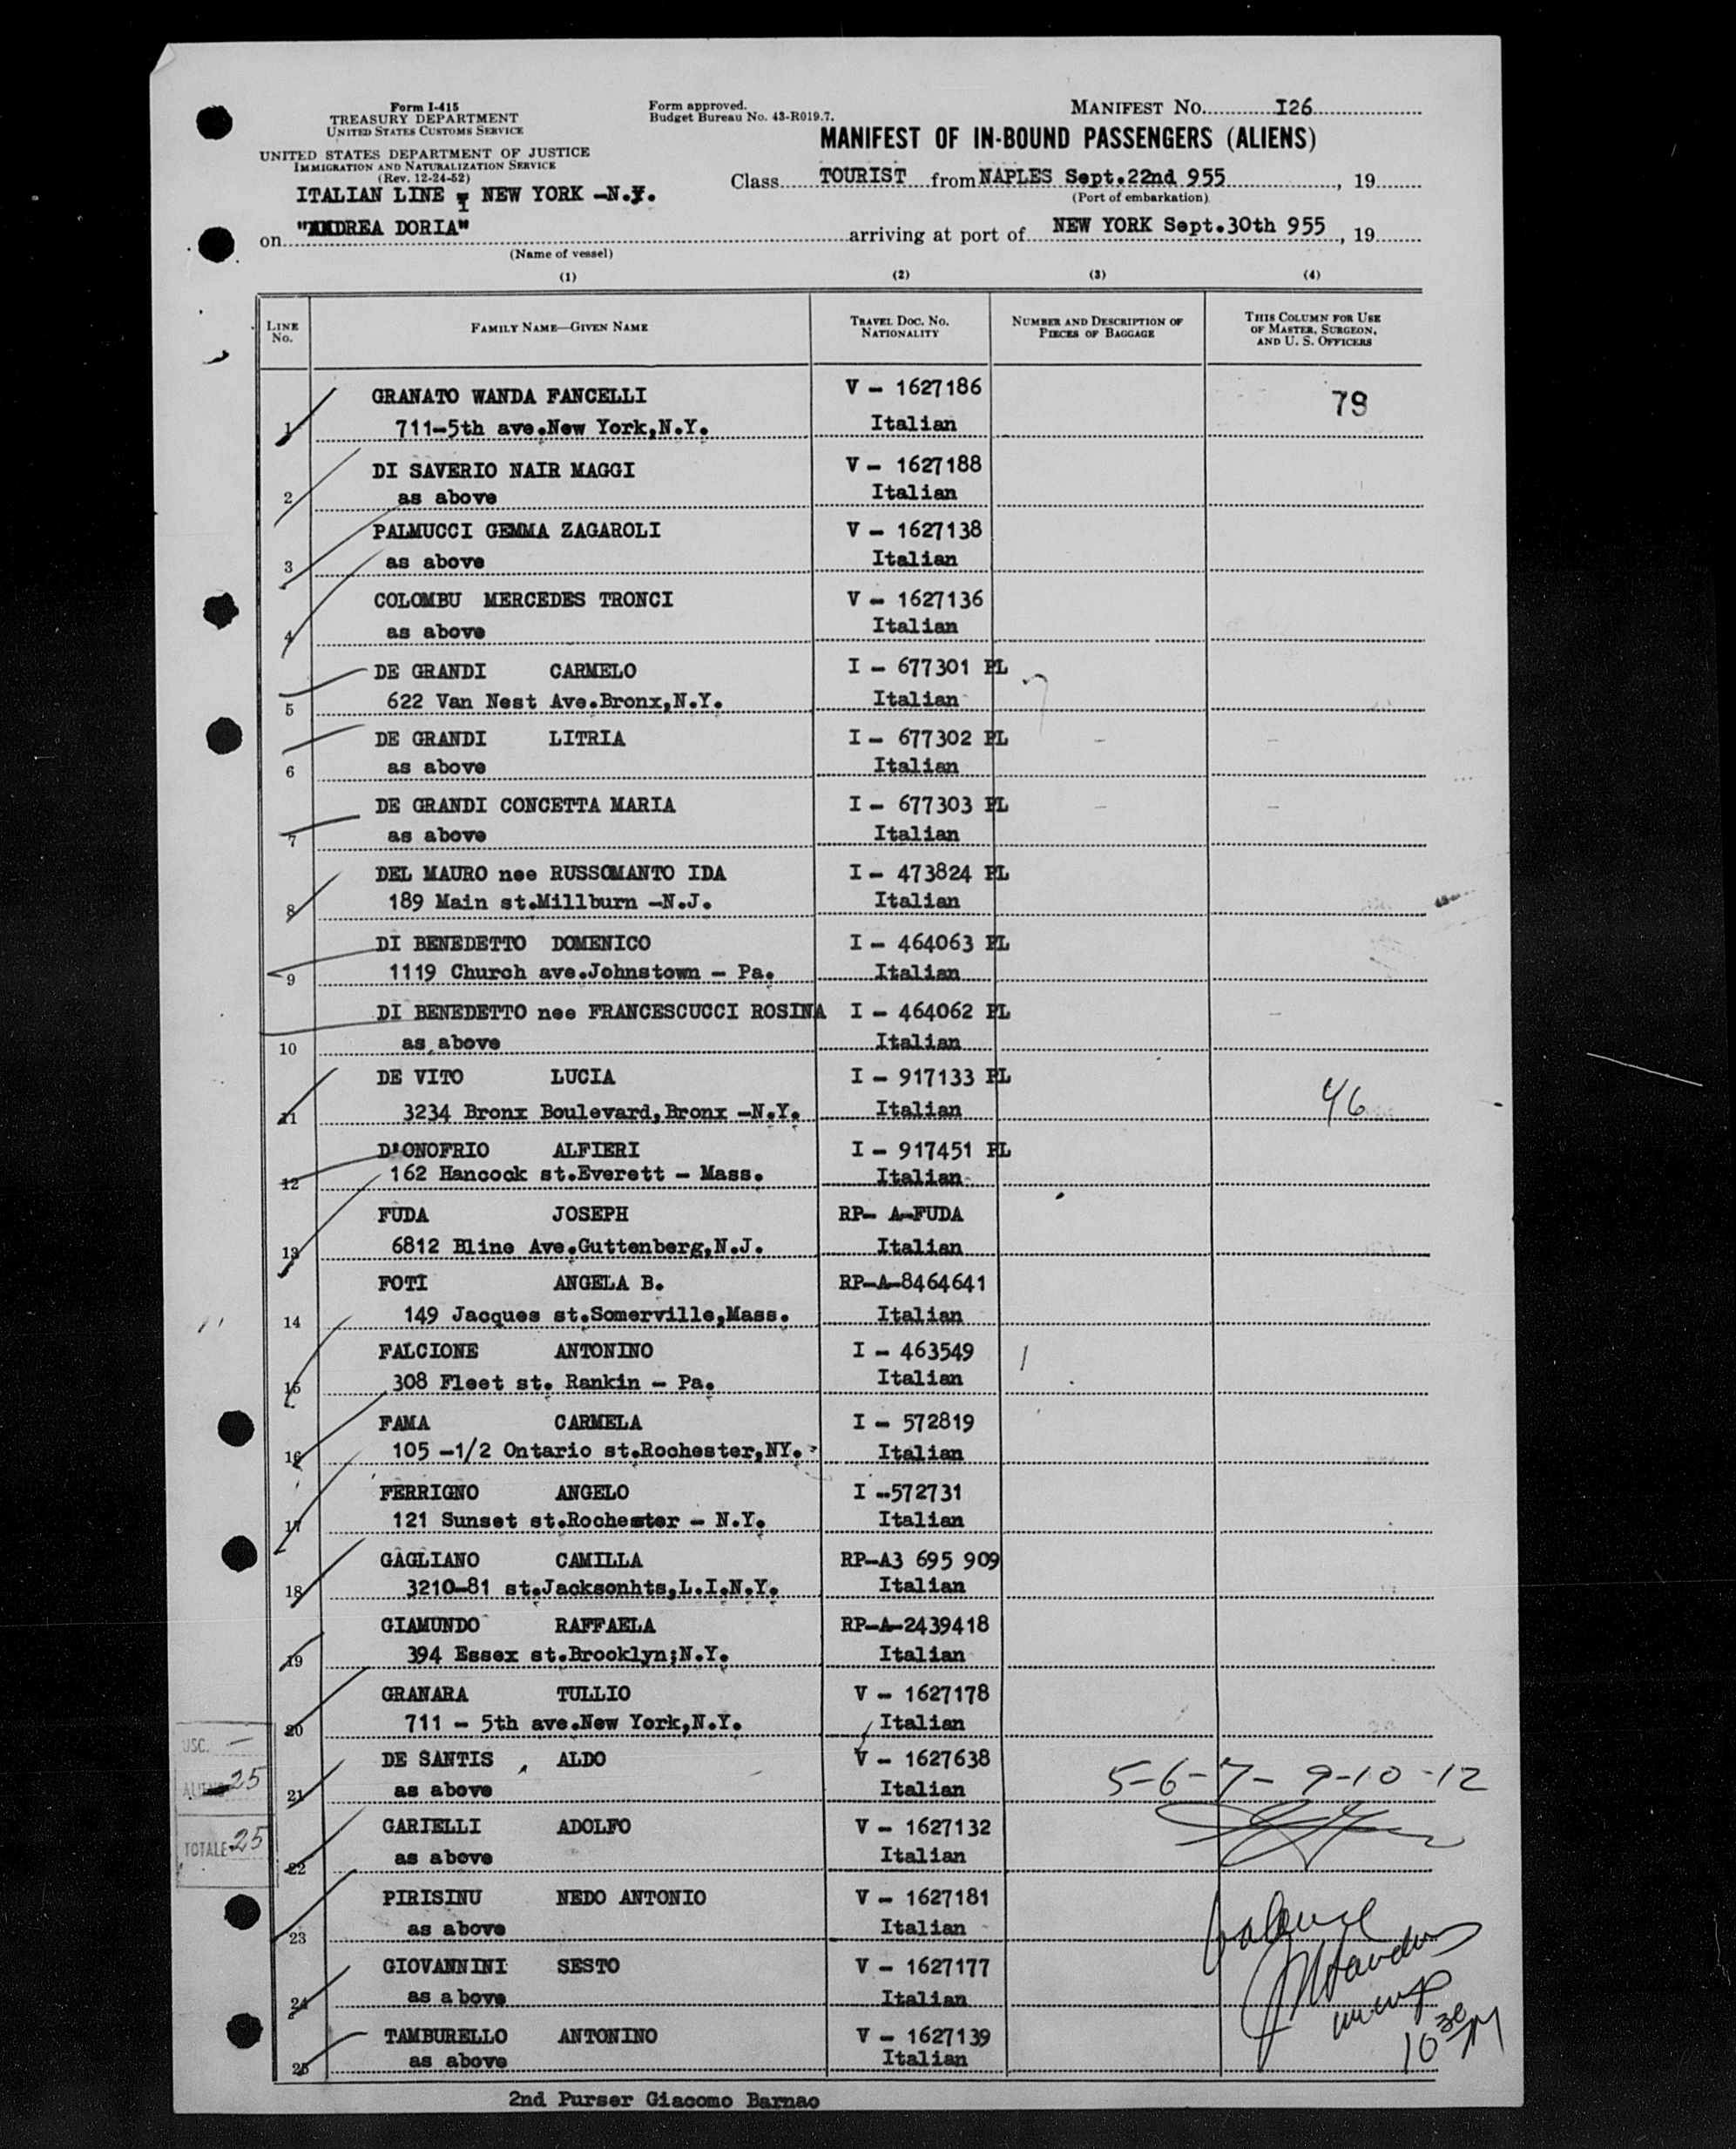 Form I-415
TREASURY DEPARTMENT
UNITED STATES CUSTOMS SERVICE
UNITED STATES DEPARTMENT OF JUSTICE
IMMIGRATION AND NATURALIZATION SERVICE
(Rev. 12-24-52)
Form approved.
Budget Bureau No. 43-R019.7.
MANIFEST NO. I26
MANIFEST OF IN-BOUND PASSENGERS (ALIENS)
ITALIAN LINE - NEW YORK -N.Y.
Class TOURIST from NAPLES Sept.22nd 955, 19
(Port of embarkation)
on "ANDREA DORIA" arriving at port of NEW YORK Sept.30th 955, 19
(Name of vessel)
(1) (2) (3) (4)
LINE No. FAMILY NAME—GIVEN NAME TRAVEL DOC. NO. NATIONALITY NUMBER AND DESCRIPTION OF PIECES OF BAGGAGE THIS COLUMN FOR USE OF MASTER, SURGEON, AND U. S. OFFICERS
GRANATO WANDA FANCELLI V - 1627186 79
1 711-5th ave.New York,N.Y. Italian
DI SAVERIO NAIR MAGGI V - 1627188
2 as above Italian
PALMUCCI GEMMA ZAGAROLI V - 1627138
3 as above Italian
COLOMBU MERCEDES TRONCI V - 1627136
4 as above Italian
DE GRANDI CARMELO I - 677301 PL
5 622 Van Nest Ave.Bronx,N.Y. Italian
DE GRANDI LITRIA I - 677302 PL
6 as above Italian
DE GRANDI CONCETTA MARIA I - 677303 PL
7 as above Italian
DEL MAURO nee RUSSOMANTO IDA I - 473824 PL
8 189 Main st.Millburn -N.J. Italian
DI BENEDETTO DOMENICO I - 464063 PL
9 1119 Church ave.Johnstown - Pa. Italian
DI BENEDETTO nee FRANCESCUCCI ROSINA I - 464062 PL
10 as above Italian
DE VITO LUCIA I - 917133 PL 46
11 3234 Bronx Boulevard,Bronx -N.Y. Italian
D'ONOFRIO ALFIERI I - 917451 PL
12 162 Hancock st.Everett - Mass. Italian
FUDA JOSEPH RP- A-FUDA
13 6812 Bline Ave.Guttenberg,N.J. Italian
FOTI ANGELA B. RP-A-8464641
14 149 Jacques st.Somerville,Mass. Italian
FALCIONE ANTONINO I - 463549
15 308 Fleet st. Rankin - Pa. Italian
FAMA CARMELA I - 572819
16 105 -1/2 Ontario st.Rochester,NY. Italian
FERRIGNO ANGELO I --572731
17 121 Sunset st.Rochester - N.Y. Italian
GAGLIANO CAMILLA RP-A3 695 909
18 3210-81 st.Jacksonhts,L.I.N.Y. Italian
GIAMUNDO RAFFAELA RP-A-2439418
19 394 Essex st.Brooklyn;N.Y. Italian
GRANARA TULLIO V - 1627178
20 711 - 5th ave.New York,N.Y. Italian
USC. -
DE SANTIS , ALDO V - 1627638 5-6-7- 9-10-12
ALIENS 25
21 as above Italian
GARIELLI ADOLFO V - 1627132
TOTALE 25
22 as above Italian
PIRISINU NEDO ANTONIO V - 1627181
balance
23 as above Italian
GIOVANNINI SESTO V - 1627177
24 as above Italian
TAMBURELLO ANTONINO V - 1627139
10 30
25 as above Italian
2nd Purser Giacomo Barnao